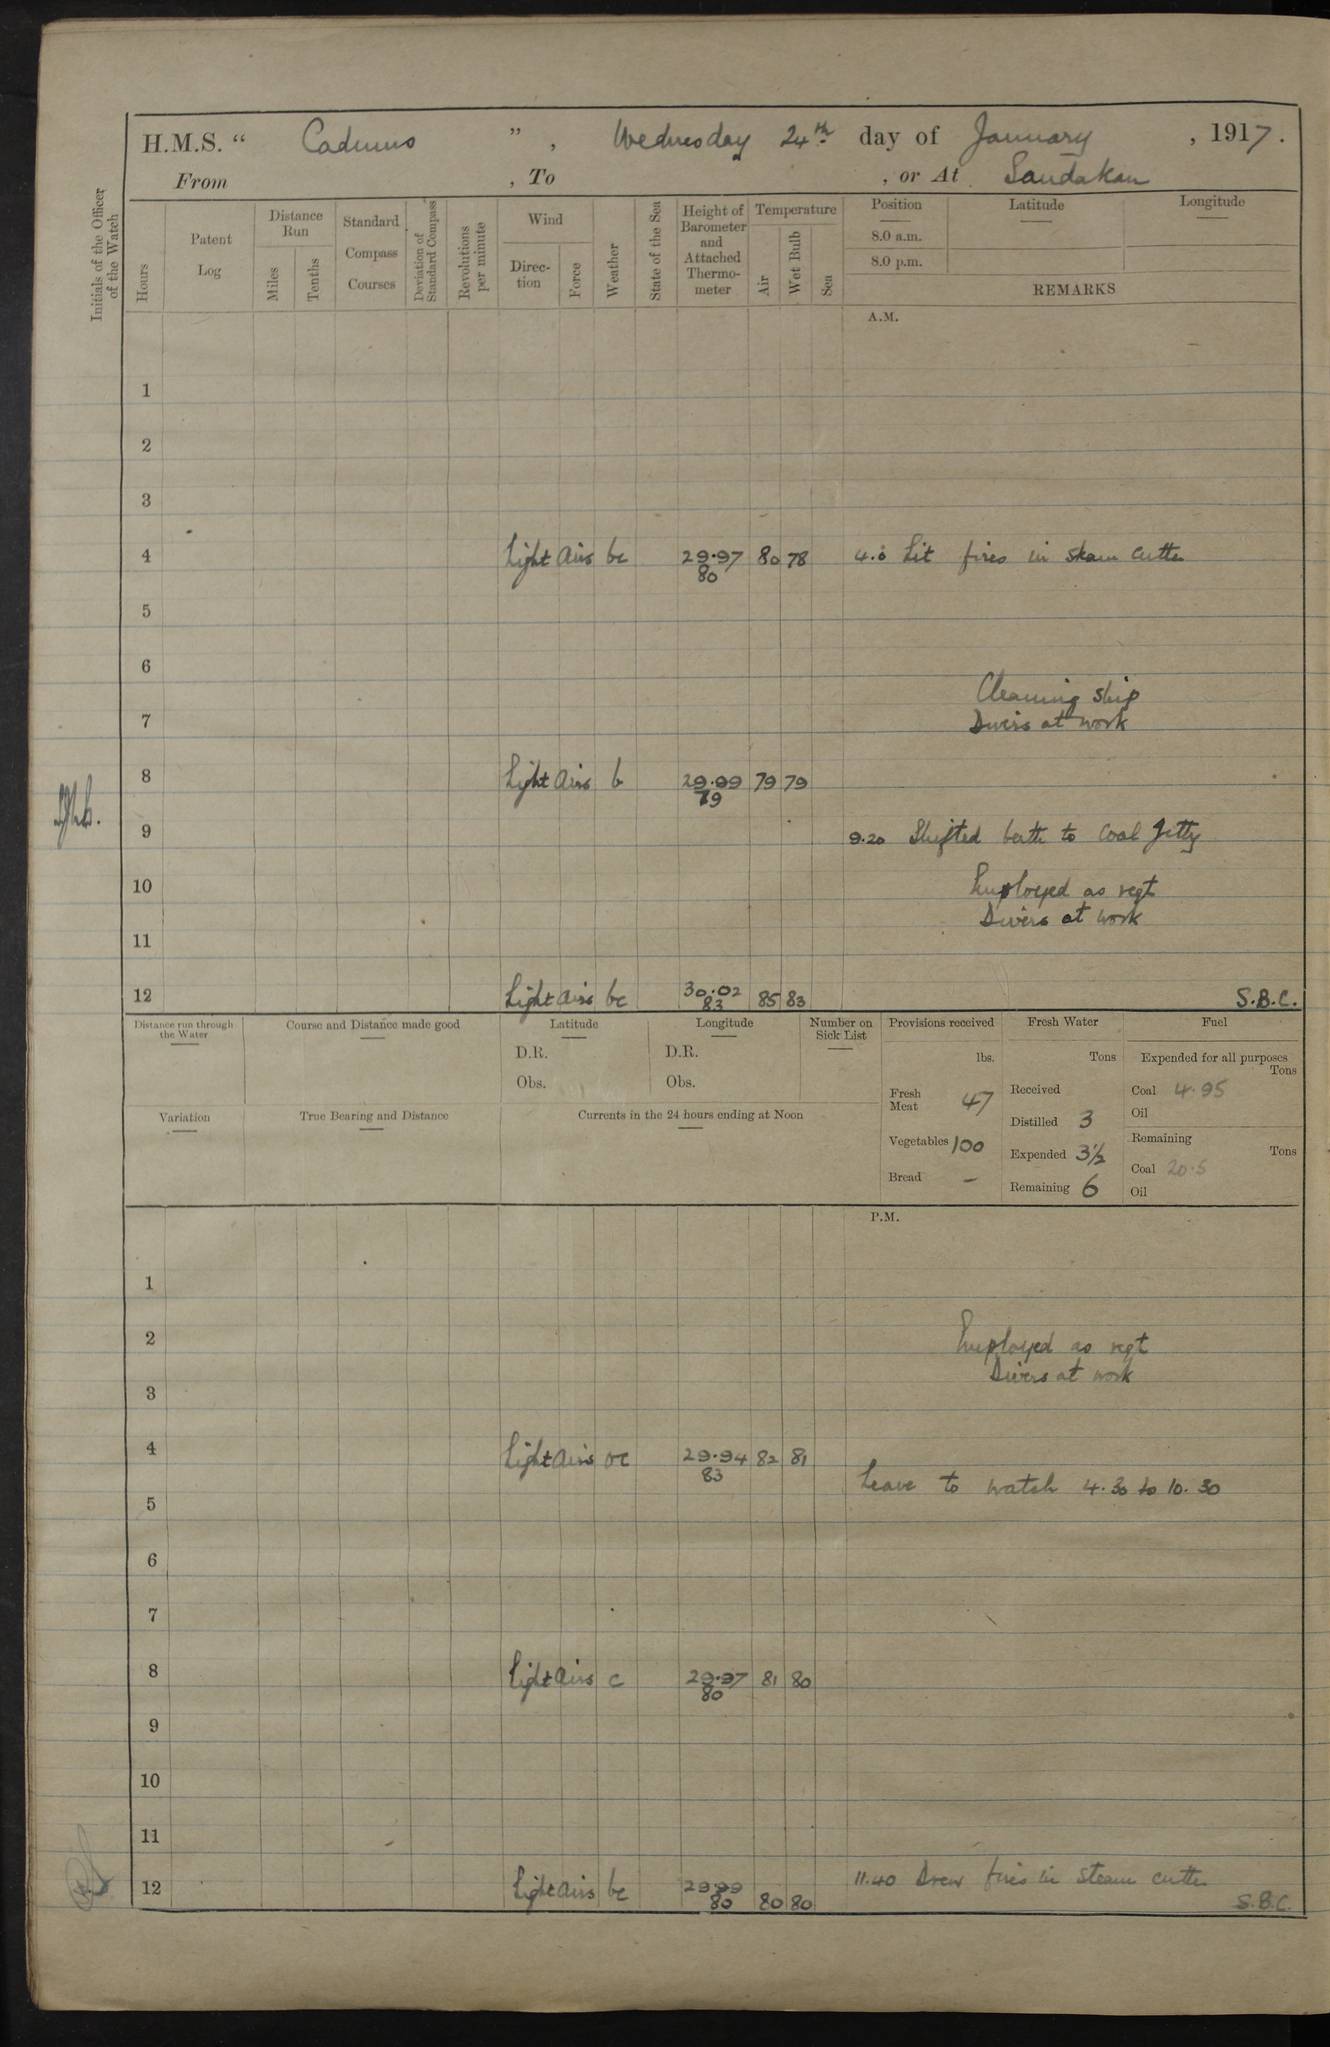 H.M.S. “ Cadmus ” , Wednesday 24th day of January , 1917.
From , To , or At Sandakan
Initials of the Officer of the Watch
Hours
Patent Log
Distance Run
Miles
Tenths
Standard Compass Courses
Deviation of Standard Compass
Revolutions per minute
Wind
Direction
Force
Weather
State of the Sea
Height of Barometer and Attached Thermometer
Temperature
Air
Wet Bulb
Sea
Position Latitude Longitude
8.0 a.m.
8.0 p.m.
REMARKS
A.M.
1
2
3
4 Light airs bc 29.97 80 78 4.0 Lit fires in steam cutter
80
5
6
Cleaning ship
7 Divers at work
8 Light airs b 29.99 79 79
79
9 9.20 Shifted berth to Coal Jetty
10 Employed as reqt
Divers at work
11
12 Light airs bc 30.02 85 83 S.B.C.
83
Distance run through the Water
Course and Distance made good
Latitude
D.R.
Obs.
Longitude
D.R.
Obs.
Number on Sick List
Variation
True Bearing and Distance
Currents in the 24 hours ending at Noon
Provisions received
lbs.
Fresh Meat 47
Vegetables 100
Bread -
Fresh Water
Tons
Received
Distilled 3
Expended 3½
Remaining 6
Fuel
Expended for all purposes
Tons
Coal 4.95
Oil
Remaining
Tons
Coal 20.5
Oil
P.M.
1
2 Employed as reqt
Divers at work
3
4 Light airs oc 29.94 82 81
83
Leave to watch 4.30 to 10.30
5
6
7
8 Light airs c 29.97 81 80
80
9
10
11
12 Light airs bc 29.99 80 80 11.40 Drew fires in steam cutter
80
S.B.C.